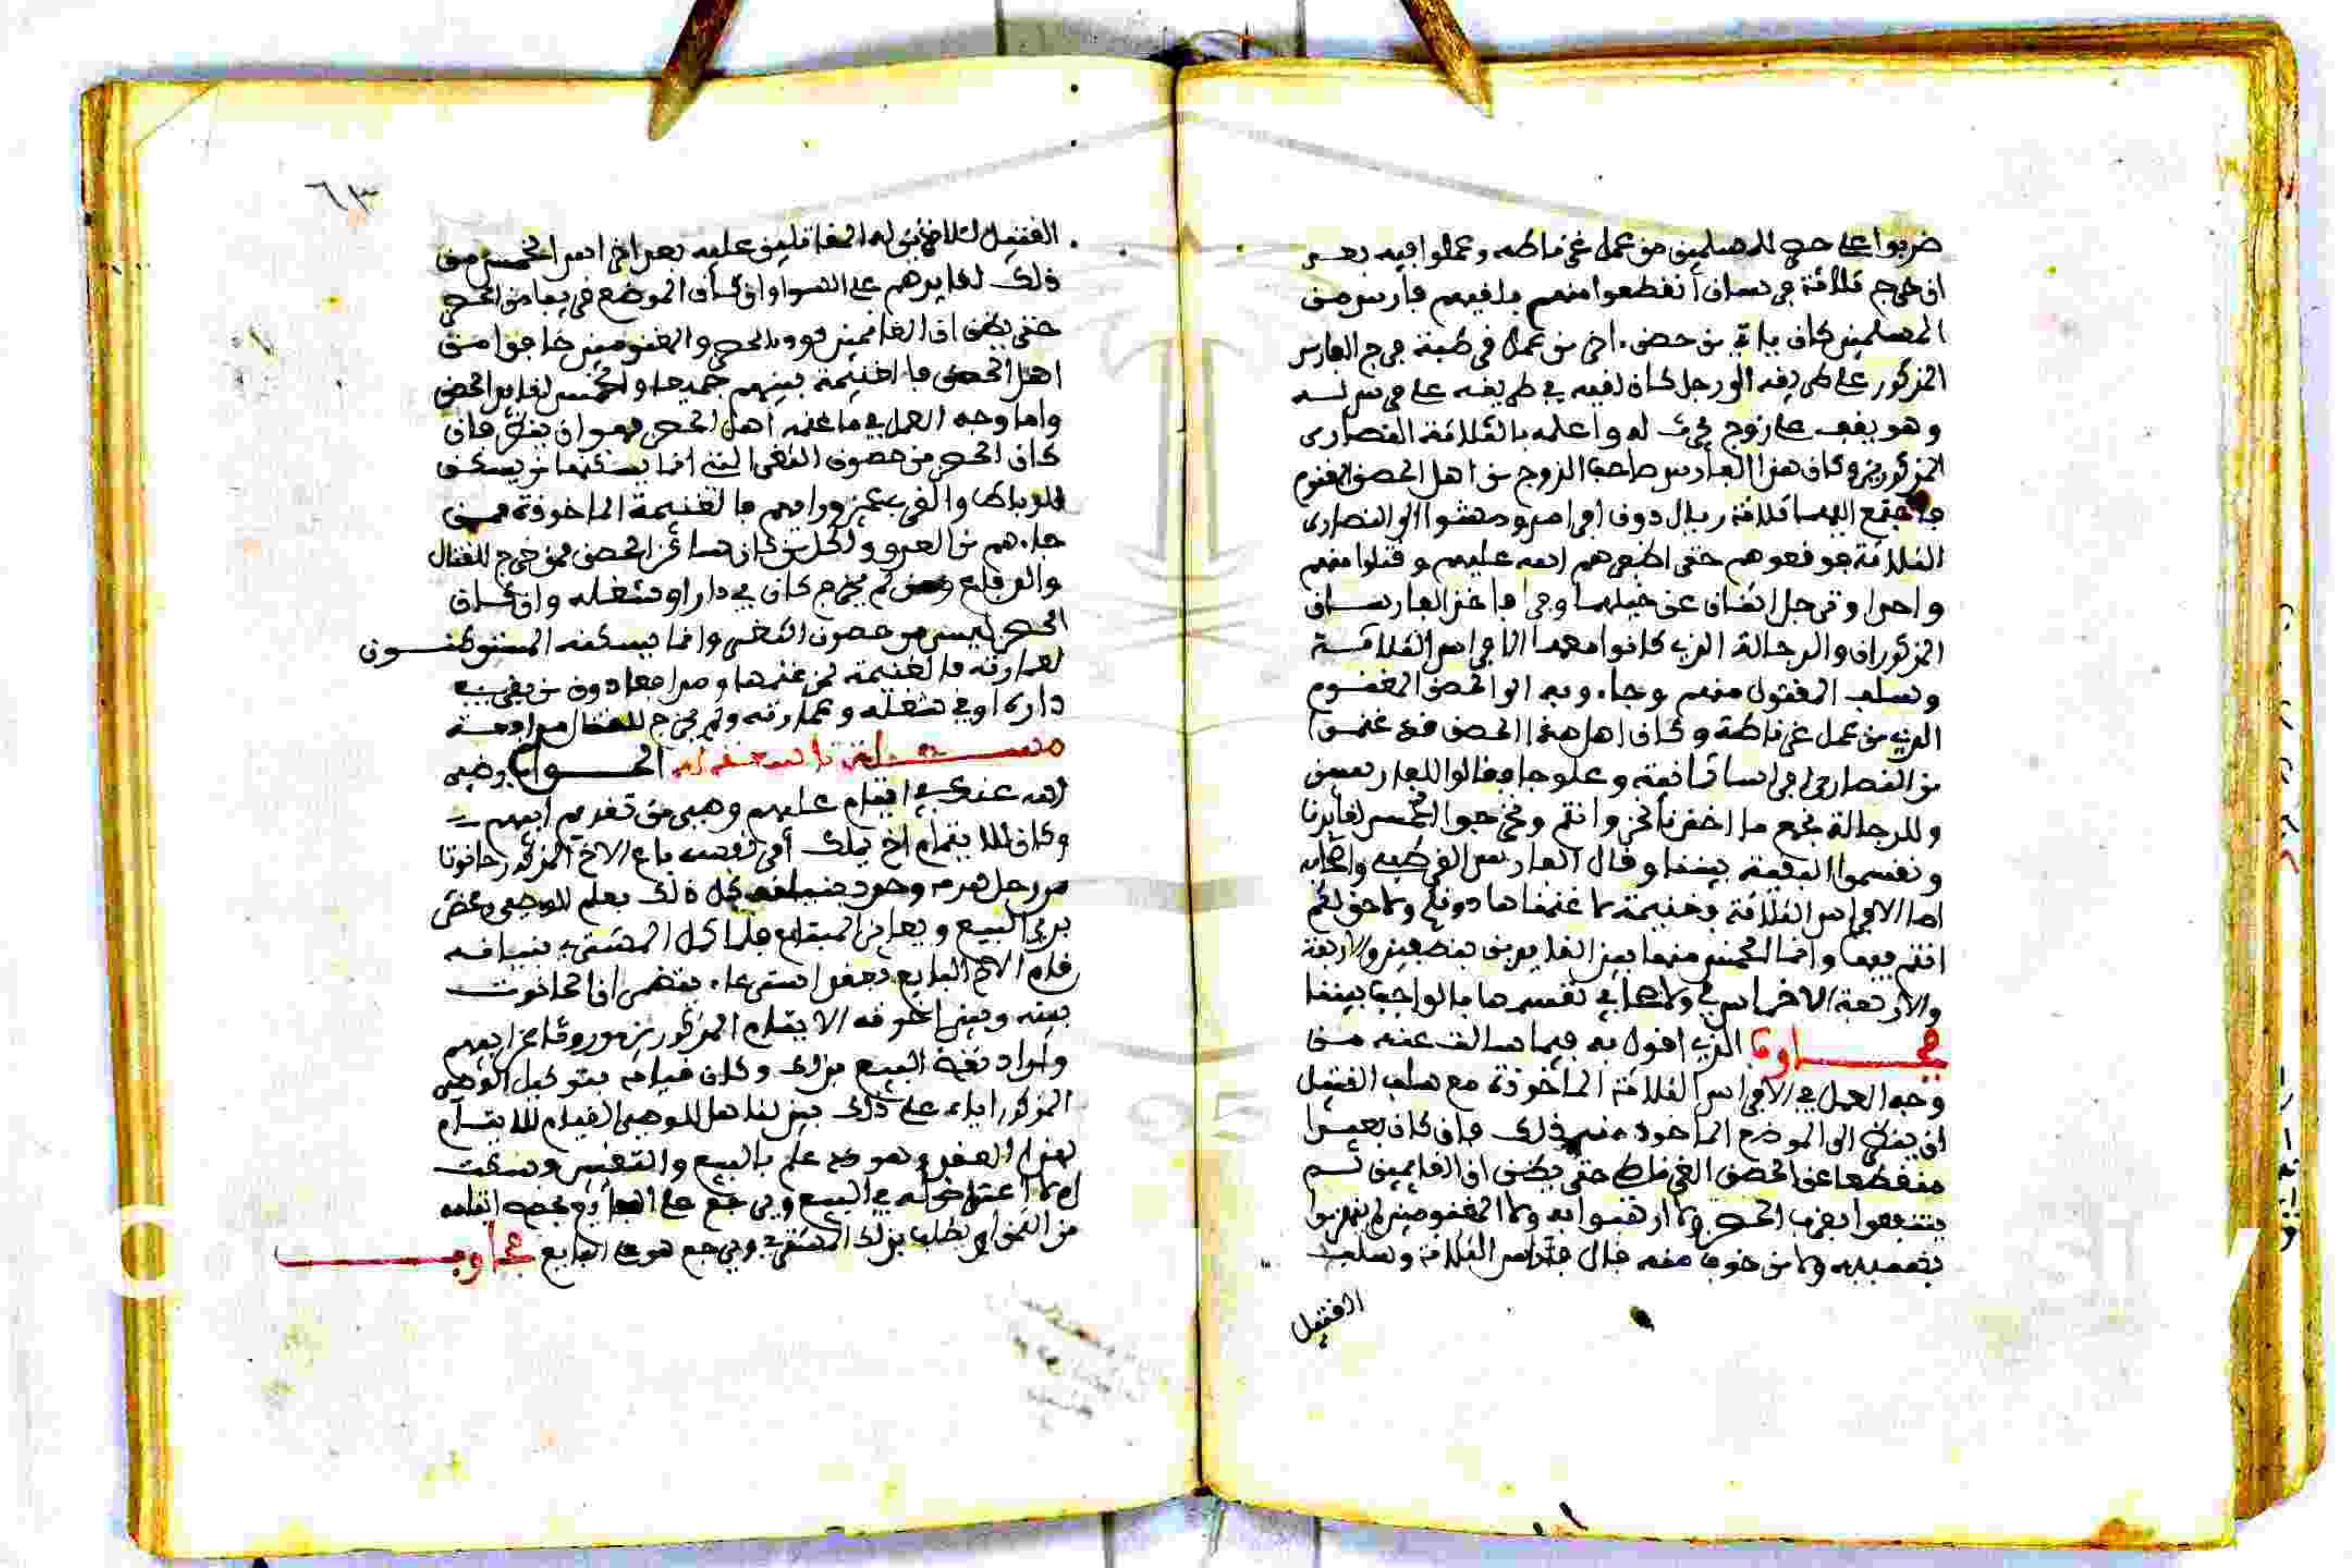 ضربوا على حصن للمسلمين من عمل غرناطه وعملوا فيه بعد
ان خرج ثلاثة فرسان انقطعوا منهم فلقيهم فارس من
المسلمين كان ياتي من حصن اخر من عمل في طيبة خرج الفارس
المذكور على طريقه الى رجل كان لقيه في طريقه على فرس له
وهو يقف على زوج يحرث له واعلمه بالثلاثة النصارى
المذكورين وكان هذا الفارس صاحب الزوج من اهل الحصن المغنوم
فاجتمع اليهما ثلاثة رجال دون افراس ومشوا الى النصارى
الثلاثة فوقعوهم حتى اظفرهم الله عليهم وقتلوا منهم
واحدا وترجل اثنان عن خيلهما وفرا فاخذ الفارسان
المذكوران والرجالة الذين كانوا معهما الافراس الثلاثة
وسلب المقتول منهم وجاءوا به الى الحصن المغنوم
الذي من عمل غرناطة وكان اهل هذا الحصن قد غنموا
من النصارى افراسا ثمانية وعلوجا فقالوا للفارسين
وللرجالة نجمع ما اخذنا نحن وانتم ونخرجوا الخمس لقايدنا
ونقسموا البقية بيننا وقال الفارس القرطبي واصحابه
اما الافراس الثلاثة فغنيمة لنا غنمناها دونكم ولا حق لكم
انتم فيها وانما الخمس منها بين القايدين بنصفين والاربعة
والاربعة الاخراس لي ولاصحابي نقسمها بالواجب بيننا
فجاوب الذي اقول به فيما سالت عنه من
وجه العمل في الافراس الثلاثة الماخوذة مع سلب القتيل
ان ينظر الى الموضع الماخوذ منه ذلك فان كان بعيدا
منقطعا عن الحصن الغرناطي حتى يظن ان الغانمين لم
يتشجعوا بقرب الحصن ولا ارهبوا به ولا المغنومين لم يهربوا
بسببه ولا من خوف منه فان الافراس الثلاثة وسلب
القتيل
٦٣
القتيل للاخذين له المقاتلين عليه بعد اخراج الخمس من
ذلك لقايدهم على السوا وان كان الموضع قريبا من الحصن
حتى يظن ان الغانمين قووا بالحصن والمغنومين خافوا من
اهل الحصن فالغنيمة بينهم جميعا والخمس لقايد الحصن
واما وجه العمل في ما غنمه اهل الحصن فهو ان ينظر فان
كان الحصن من حصون الثغر التي انما يسكنها من يسكن
للرباط والقرب ممن وراءهم فالغنيمة الماخوذة ممن
جاءهم من العدو ولكل من كان ساكن الحصن ممن خرج للقتال
والدفاع ومن لم يخرج كان في دار او شغله وان كان
الحصن ليس من حصون الثغر وانما يسكنه المستوطنون
لعمارته فالغنيمة لمن غنمها ودافع دون من بقي في
داره او في شغله وعمارته ولم يخرج للقتال
مسئلة الجواب رضي
الله عنك في ايتام عليهم وصي من تقديم ابيهم
وكان للايتام اخ يملك امر نفسه باع الاخ المذكور حانوتا
من رجل كل ذلك بعلم للوصي ومحضر
يرى البيع ويعاين المبتاع فلما كمل المشتري بنيانه
قام الاخ البايع بعقد استرعاء يتضمن ان الحانوت
بينه وبين اخوته الايتام المذكورين موروثا عن ابيهم
واراد نقض البيع بذلك وكان قيامه بتوكيل الوصي
المذكور اياه على ذلك بين لنا هل للوصي القيام للايتام
بهذا العقد وهو قد علم بالبيع والتغيير وسكت
ام لا اعتراض له في البيع ويرجع على البايع بحصة ايتامه
من الثمن او يطلب بذلك المشتري ويرجع هو على البايع فجاوب